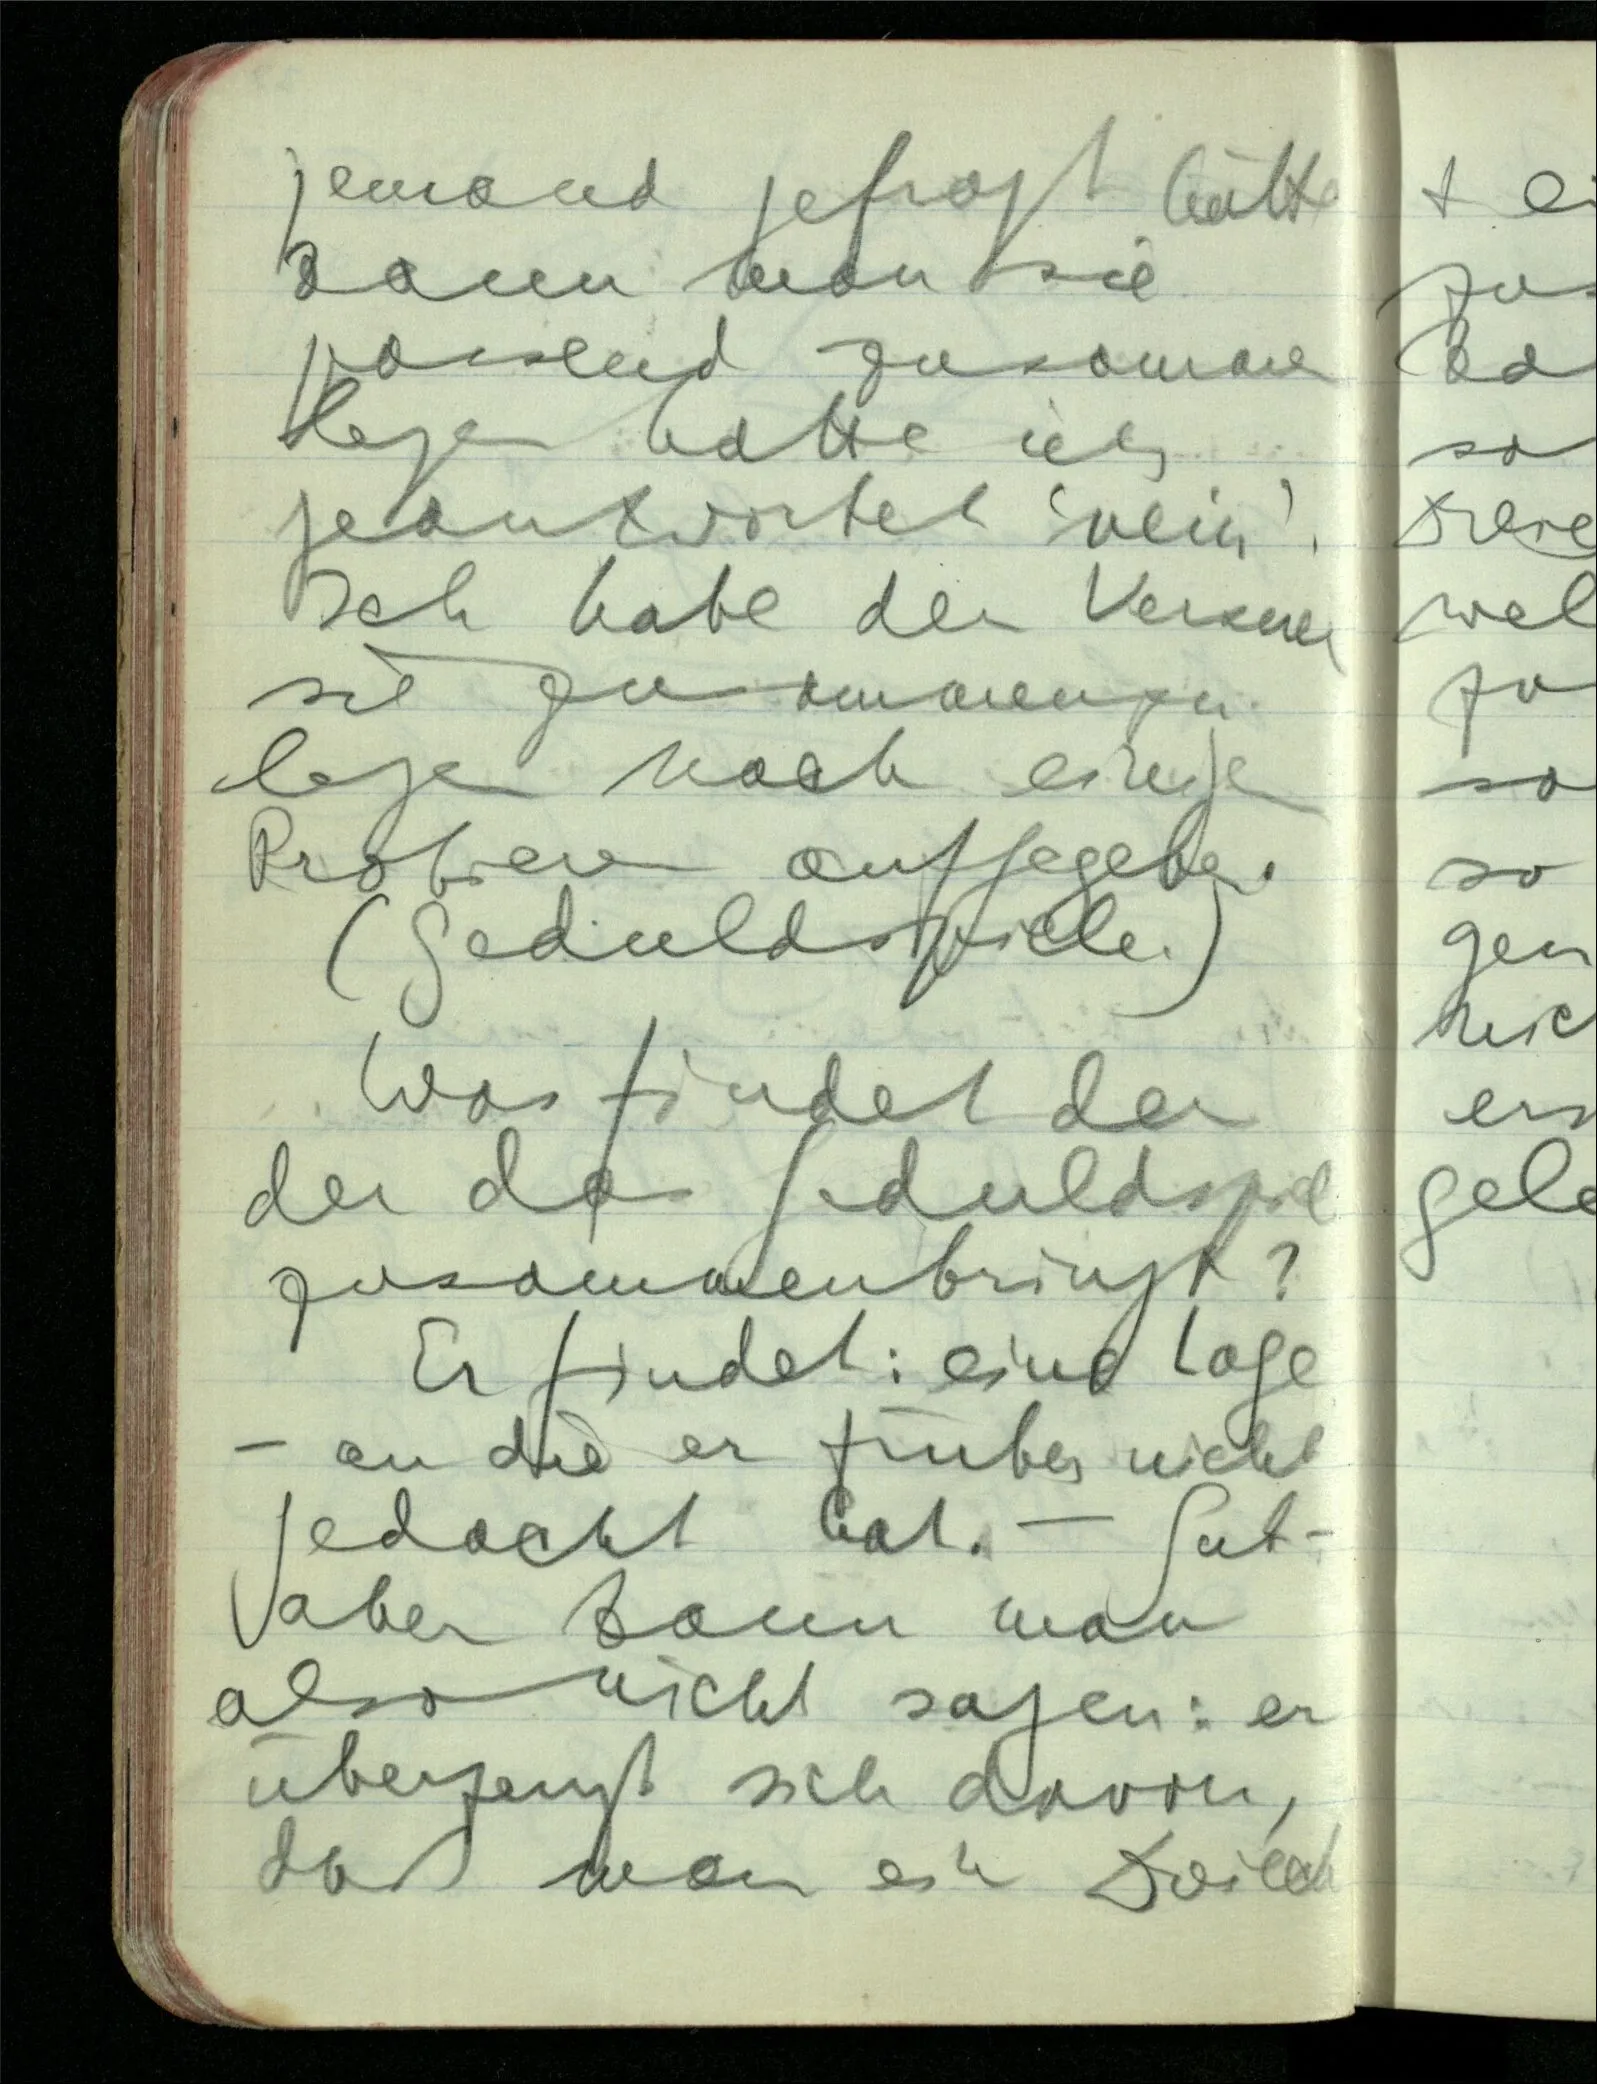 jemand gefragt hätte
kann man sie
passend zusammen
legen hätte ich
geantwortet 'nein'.
Ich habe den Versuch
sie zusammenzu-
legen nach einigem
Probieren aufgegeben.
(Geduldspiele.)
Was findet der
der das Geduldspiel
zusammenbringt?
Er findet: eine Lage
– an die er früher nicht
gedacht hat. – Gut –
aber kann man
also nicht sagen: er
überzeugt sich davon,
daß man ein Dreieck